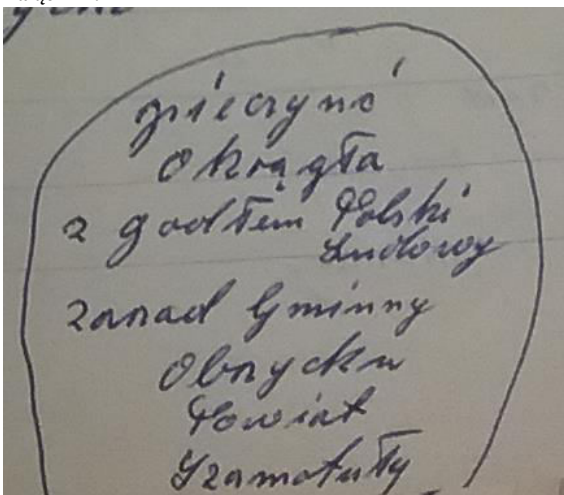 pieczynć
Okrągła
z godłem Polski
Ludowy
zarzad Gminny
Obrzycku
Powiat
Szamotuły